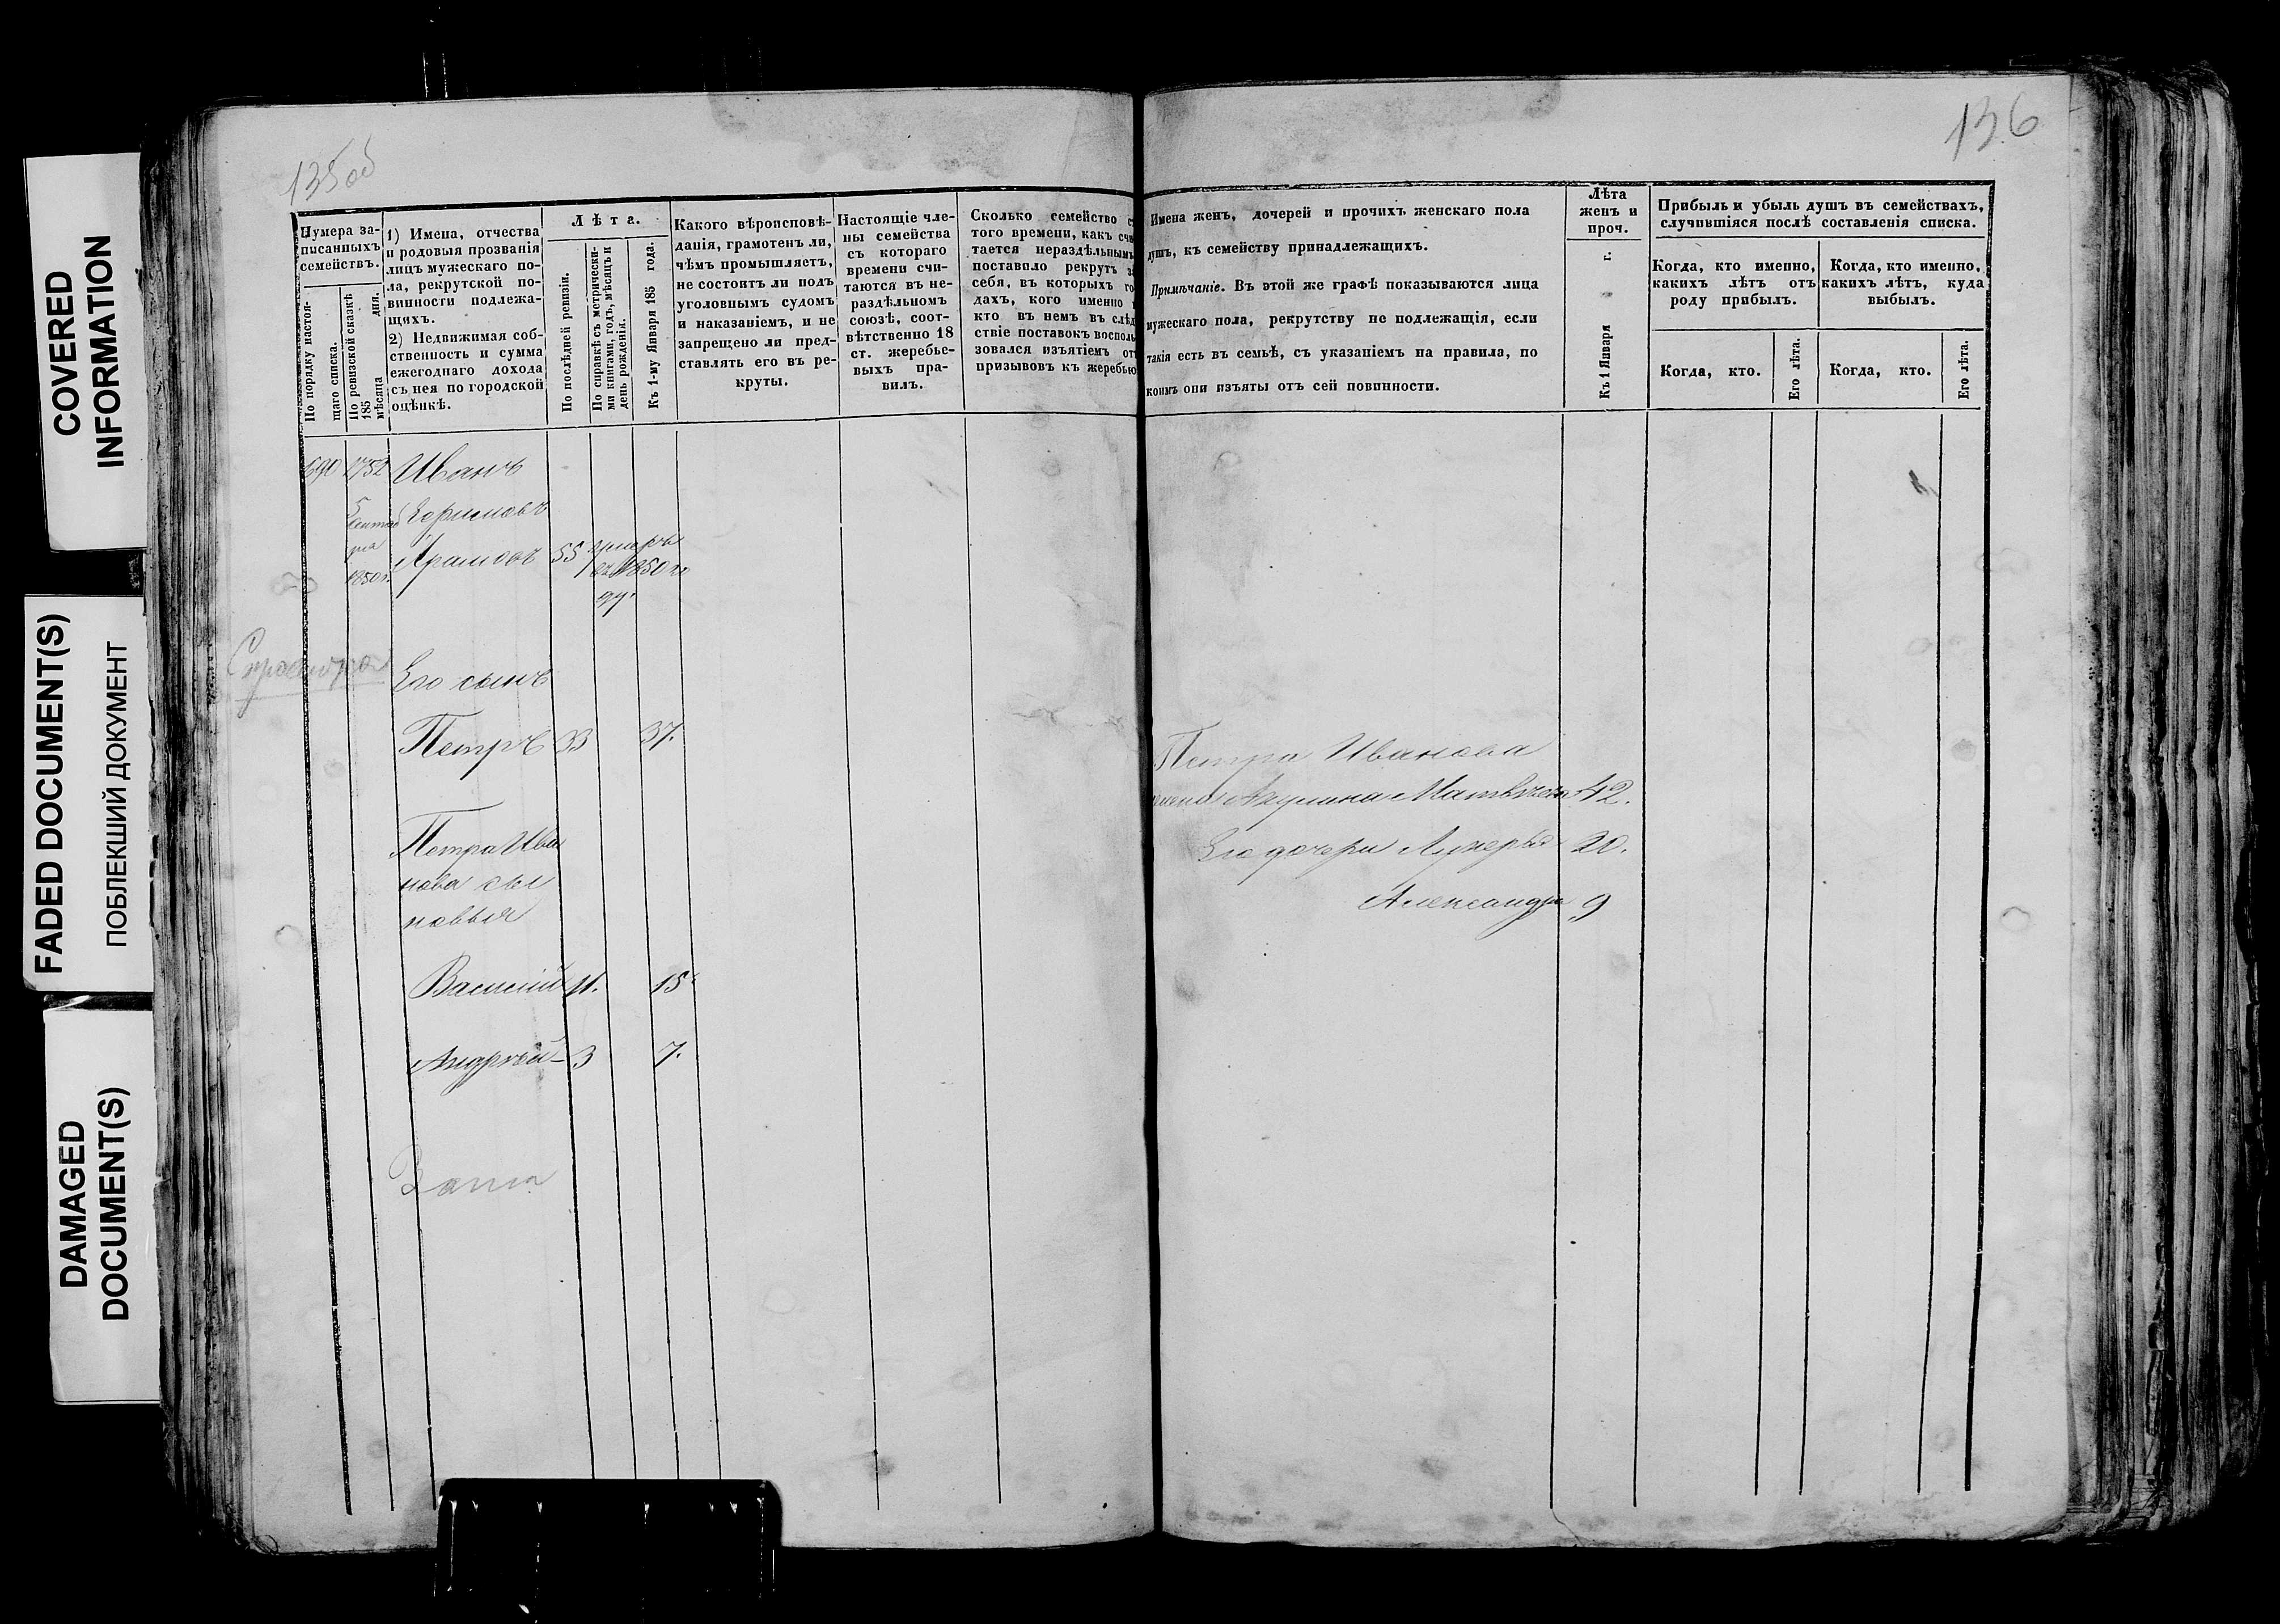 COVERED
INFORMATION
FADED DOCUMENT(S)
ПОБЛЕКШИЙ ДОКУМЕНТ
DAMAGED
DOCUMENT(S)
135об
Нумера за-
писанныхъ
семействъ.
По порядку настоя-
щаго списка.
По ревизской сказкѣ
185 дня.
мѣсяца
1) Имена, отчества
и родовыя прозванія
лицъ мужескаго по-
ла, рекрутской по-
винности подлежа-
щихъ.
2) Недвижимая соб-
ственность и сумма
ежегоднаго дохода
съ нея по городской
оцѣнкѣ.
Лѣта.
По послѣдней ревизіи.
По справкѣ съ метрически-
ми книгами, годъ, мѣсяцъ и
день рожденія.
Къ 1-му Января 185 года.
Какого вѣроисповѣ-
данія, грамотенъ ли,
чѣмъ промышляетъ,
не состоитъ ли подъ
уголовнымъ судомъ
и наказаніемъ, и не
запрещено ли пред-
ставлять его въ ре-
круты.
Настоящіе чле-
ны семейства
съ котораго
времени счи-
таются въ не-
раздѣльномъ
союзѣ, соот-
вѣтственно 18
ст. жеребье-
выхъ пра-
вилъ.
Сколько семейство с
того времени, какъ счи
тается нераздѣльнымъ
поставило рекрутъ за
себя, въ которыхъ го
дахъ, кого именно и
кто въ немъ въ слѣд
ствіе поставокъ восполь
зовался изъятіемъ отъ
призывовъ къ жеребью
690 1752 Иванъ
Сентяб
ря
1850г.
55 умеръ
въ 1850 го
ду.
Его сынъ
Петръ 33 37.
Петра Ива
нова сы
новья
Василій 11. 15
Андрей 3 7.
136
Имена женъ, дочерей и прочихъ женскаго пола
душъ, къ семейству принадлежащихъ.
Примѣчаніе. Въ этой же графѣ показываются лица
мужескаго пола, рекрутству не подлежащія, если
такія есть въ семьѣ, съ указаніемъ на правила, по
коимъ они изъяты отъ сей повинности.
Лѣта
женъ и
проч.
Къ 1 Января г.
Прибыль и убыль душъ въ семействахъ,
случившіяся послѣ составленія списка.
Когда, кто именно,
какихъ лѣтъ отъ
роду прибылъ.
Когда, кто именно,
какихъ лѣтъ, куда
выбылъ.
Когда, кто.
Его лѣта.
Когда, кто.
Его лѣта.
Петра Иванова
жена Акулина Матвѣева 42.
Его дочери Лукерья 20.
Александра 9